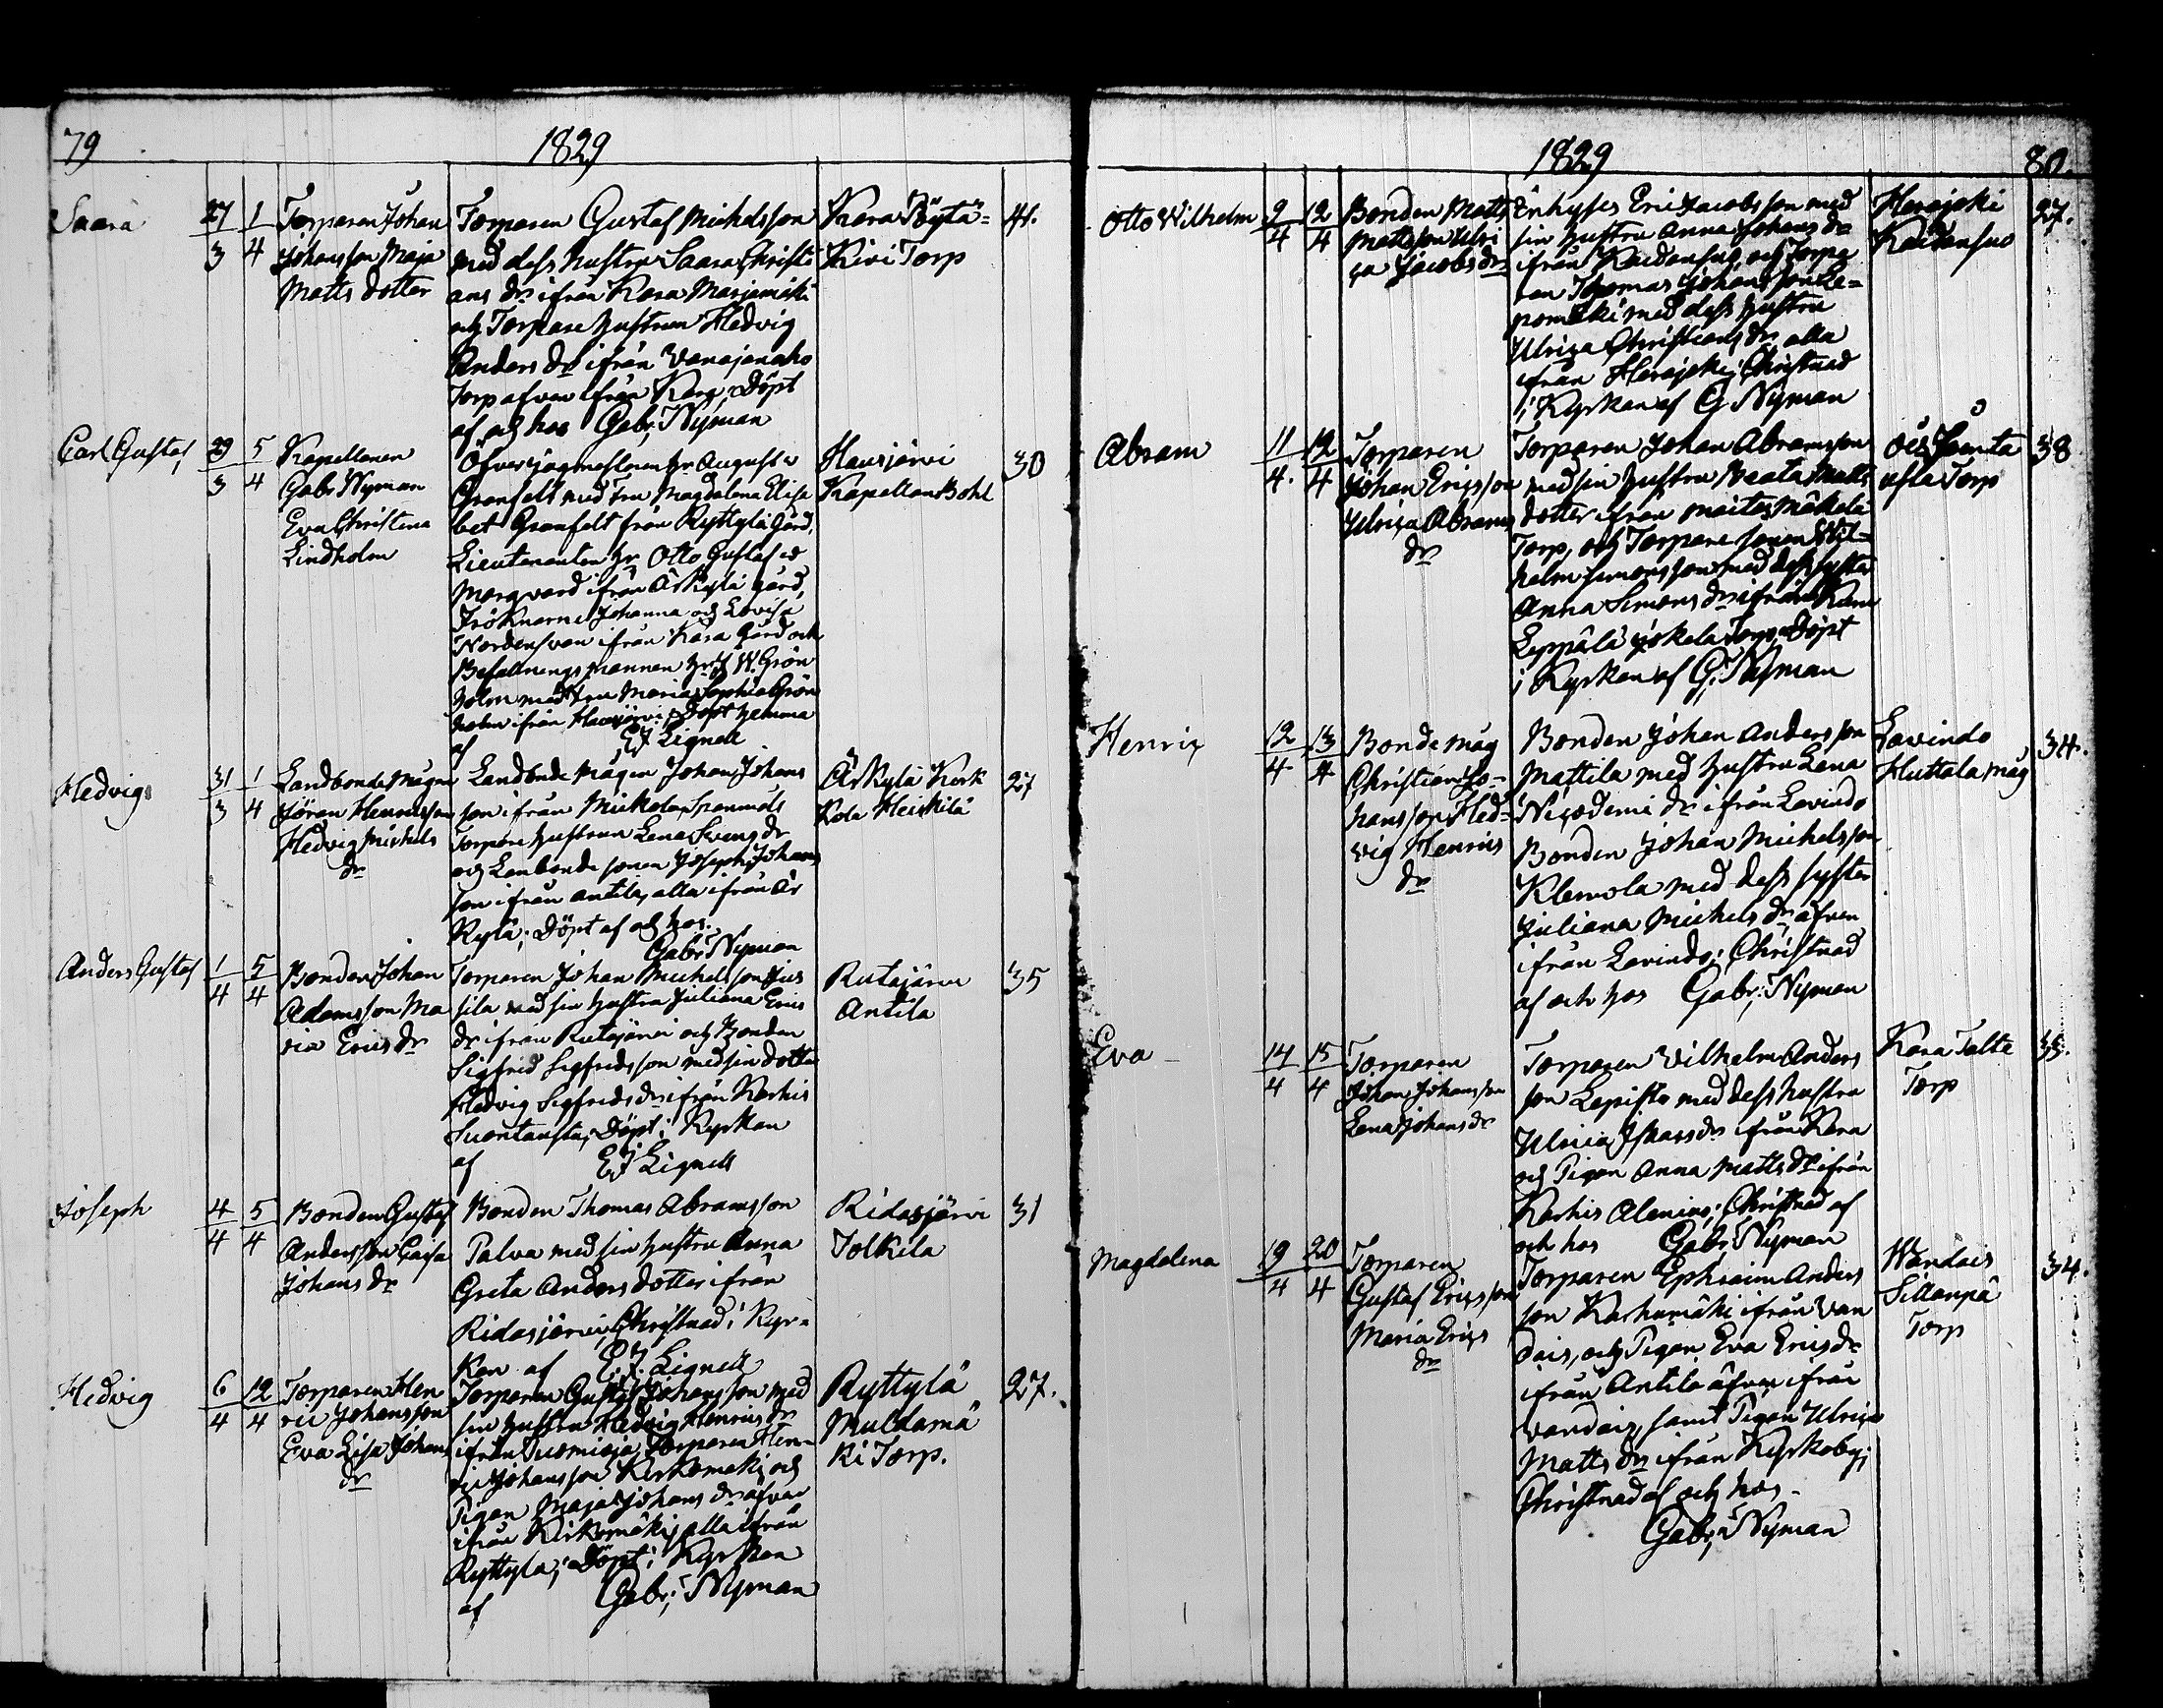 79
1829
Saara
27/3
1/4
Torparen Johan
Johansson Maja
Matts dotter
Torparen Gustaf Michelsson
med dess hustru Saara Christi
ans dr ifrån Kara Marjamäki
och Torpare hustrun Hedvig
Anders dr ifrån Vanajanaho
Torp afven ifrån Kara; Döpt
af och hos Gabr; Nyman
Kara Pöytä=
Kivi Torp
41.
Carl Gustaf
29/3
5/4
Kapellanen
Gabr Nyman
Eva Christina
Lindholm
Öfverjägmestaren hr August v
Granfelt med Fru Magdalena Elisa
bet Granfelt från Ryttylä Gård,
Lieutenanten hr Otto Gustaf v
Marqvard ifrån Äskylä gård,
Fröknarne Johanna och Lovisa
Nordensvan ifrån Kara Gård och
Befallningsmannen hr J W. Grön
holm med Fru Maria Sophia Grön
holm ifrån Hausjärvi; Döpt hemma
af EJ Lignell
Hausjärvi
Kapellan Bohl
30
Hedvig
31/3
1/4
Landbonde Mågen
Jöran Henricsson
Hedvig Michels
dr
Landbonde Mågen Johan Johans
son ifrån Mickola,
Torpare hustrun Lena Svens dr
och Lanbonde sonen Joseph Johans
son ifrån Antila, alla ifrån Är
Kylä; Döpt af och hos.
Gabr; Nyman
Ärkylä Kork
Kola Heikilä
27
Anders Gustaf
1/4
5/4
Bonden Johan
Adamsson Ma
ria Erics dr
Torparen Johan Michelsson Jus
sila med sin hustru Juliana Erics
dr ifrån Rutajärvi och Bonden
Sigfrid Sigfridsson med sin dotter
Hedvig Sigfrids dr ifrån Karhis
Suontausta; Döpt i Kyrkan
af EJ Lignell
Rutajärvi
Antila
35
Joseph
4/4
5/4
Bonden Gustaf
Andersson Caisa
Johans dr
Bonden Thomas Abramsson
Palva med sin hustru Anna
Greta Anders dotter ifrån
Ridasjärvi; Christnad i Kyr=
kan af EJ. Lignell
Ridasjärvi
Jolkila
31
Hedvig
6/4
12/4
Torparen Hen
ric Johansson
Eva Lisa Johans
dr
Torparen Gustaf Johansson med
sin hustru Hedvig Henrics dr
ifrån Tuomioja, Torparen Hen=
ric Johansson Kirkomäki och
Pigan Maja Johans dr äfven
ifrån Kirkomäki, alla ifrån
Ryttylä; Döpt i Kyrkan
af Gabr; Nyman
Ryttylä
Muldamä
Ki Torp.
27.
1829
80.
Otto Wilhelm
9/4
12/4
Bonden Matts
Mattsson Ulri
ca Jacobs dr
Enhyses Eric Jacobsson med
sin hustru Anna Johans dr
ifrån Kaidansuo, och Torpa
ren Thomas Johansson Le=
pomäki med dess hustru
Ulrica Christians dr alla
ifrån Herajoki; Christnad
i Kyrkan af G Nyman
Herajoki
Kaidansuo
27.
Abram
11/4.
12/4
Torparen
Johan Ericsson
Ulrica Abrams
dr
Torparen Johan Abramsson
med sin hustru Beata Matts
dotter ifrån Mäkelä
Torp, och Torpare sonen Wil=
helm Simonsson med dess syster
Anna Simons dr ifrån Kara
Leppälä Jokela Torp; Döpt
i Kyrkan af G. Nyman
Torp
38
Henric
12/4
13/4
Bonde måg
Christian Jo=
hansson Hed=
vig Henrics
dr
Bonden Johan Andersson
Mattila med hustru Lena
Nicodemi dr ifrån Lavindo
Bonden Johan Michelsson
Klemola med dess syster
Juliana Michels dr äfven
ifrån Lavindo; Christnad
af och hos Gabr; Nyman
Lavindo
Huttala måg
34.
Eva
14/4
15/4
Torparen
Johan Johansson
Lena Johans dr
Torparen Vilhelm Anders
son Lepistö med dess hustru
Ulrica Isaacs dr ifrån Kara
och Pigan Anna Matts dr ifrån
Karhis Alenius; Christnad af
och hos Gabr; Nyman
Kara Talte
Torp
35.
Magdalena
19/4
20/4
Torparen
Gustaf Ericsson
Maria Erics
dr
Torparen Ephraim Anders
son Karhumäki ifrån Van
dais, och Pigan Eva Erics dr
ifrån Antila äfven ifrån
Vandais, samt Pigan Ulrica
Matts dr ifrån Kyrkoby;
Christnad af och hos
Gabr; Nyman
Wandais
Sillanpä
Torp
34.